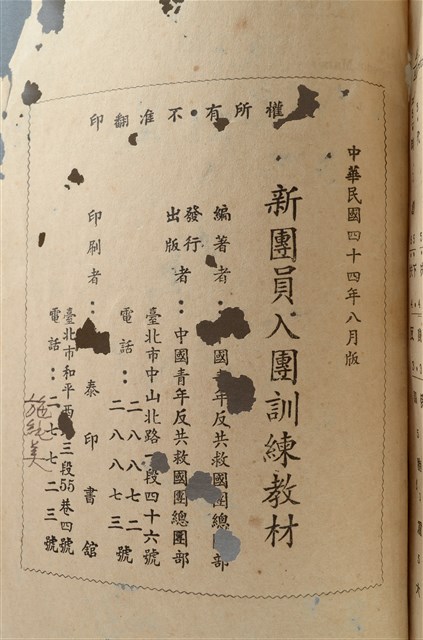 權所有•不准翻印
中華民國四十四年八月版
新團員入團訓練教材
編著者：中國青年反共救國團總團部
發行
出版者：中國青年反共救國團總團部
臺北市中山北路一段四十六號
電話：二八八七二
二八八七三號
印刷者：泰印書舘
臺北市和平西三段55巷四號
電話：二七七二三號